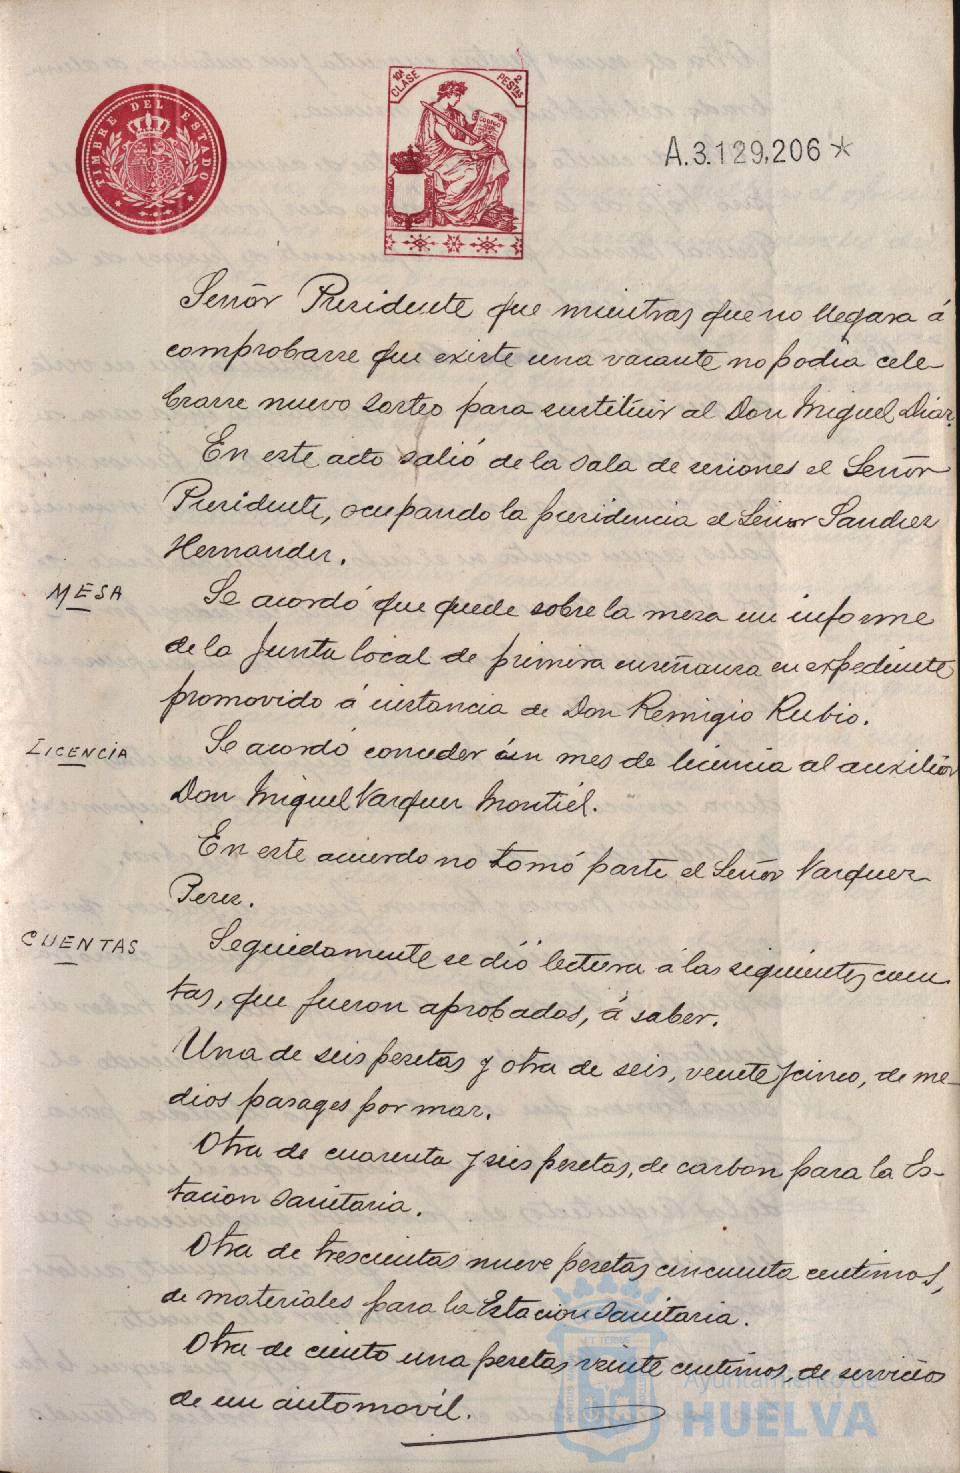 TIMBRE DEL ESTADO
10ª CLASE
2 PESTAS
CODIGO
A.3.129,206*
Señor Presidente que mientras que no llegara á
comprobarse que existe una vacante no podia cele-
brarse nuevo sorteo para sustitüir al Don Miguel Diaz.
En este acto salió de la sala de sesiones el Señor
Presidente, ocupando la presidencia el Señor Sanchez
Hernandez.
MESA
Se acordó que quede sobre la mesa un informe
de la Junta local de primera enseñanza en expediente
promovido á instancia de Don Remigio Rubio.
LICENCIA
Se acordó conceder un mes de licencia al auxiliar
Don Miguel Vazquez Montiel.
En este acuerdo no tomó parte el Señor Vazquez
Perez.
CUENTAS
Seguidamente se dió lectura á las siguientes cuen-
tas, que fueron aprobadas, á saber.
Una de seis pesetas y otra de seis, veinte y cinco, de me-
dios pasages por mar.
Otra de cuarenta y seis pesetas, de carbon para la Es-
tacion Sanitaria.
Otra de trescientas nueve pesetas cincuenta centimos,
de materiales para la Estacion Sanitaria.
Otra de ciento una pesetas veinte centimos, de servicios
de un automovil.
Ayuntamiento de
HUELVA